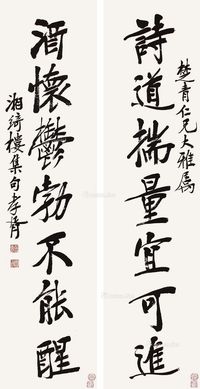 楚青仁兄大雅属
詩道揣量宜可進
酒懷鬱勃不能醒
湘綺樓集句孝胥